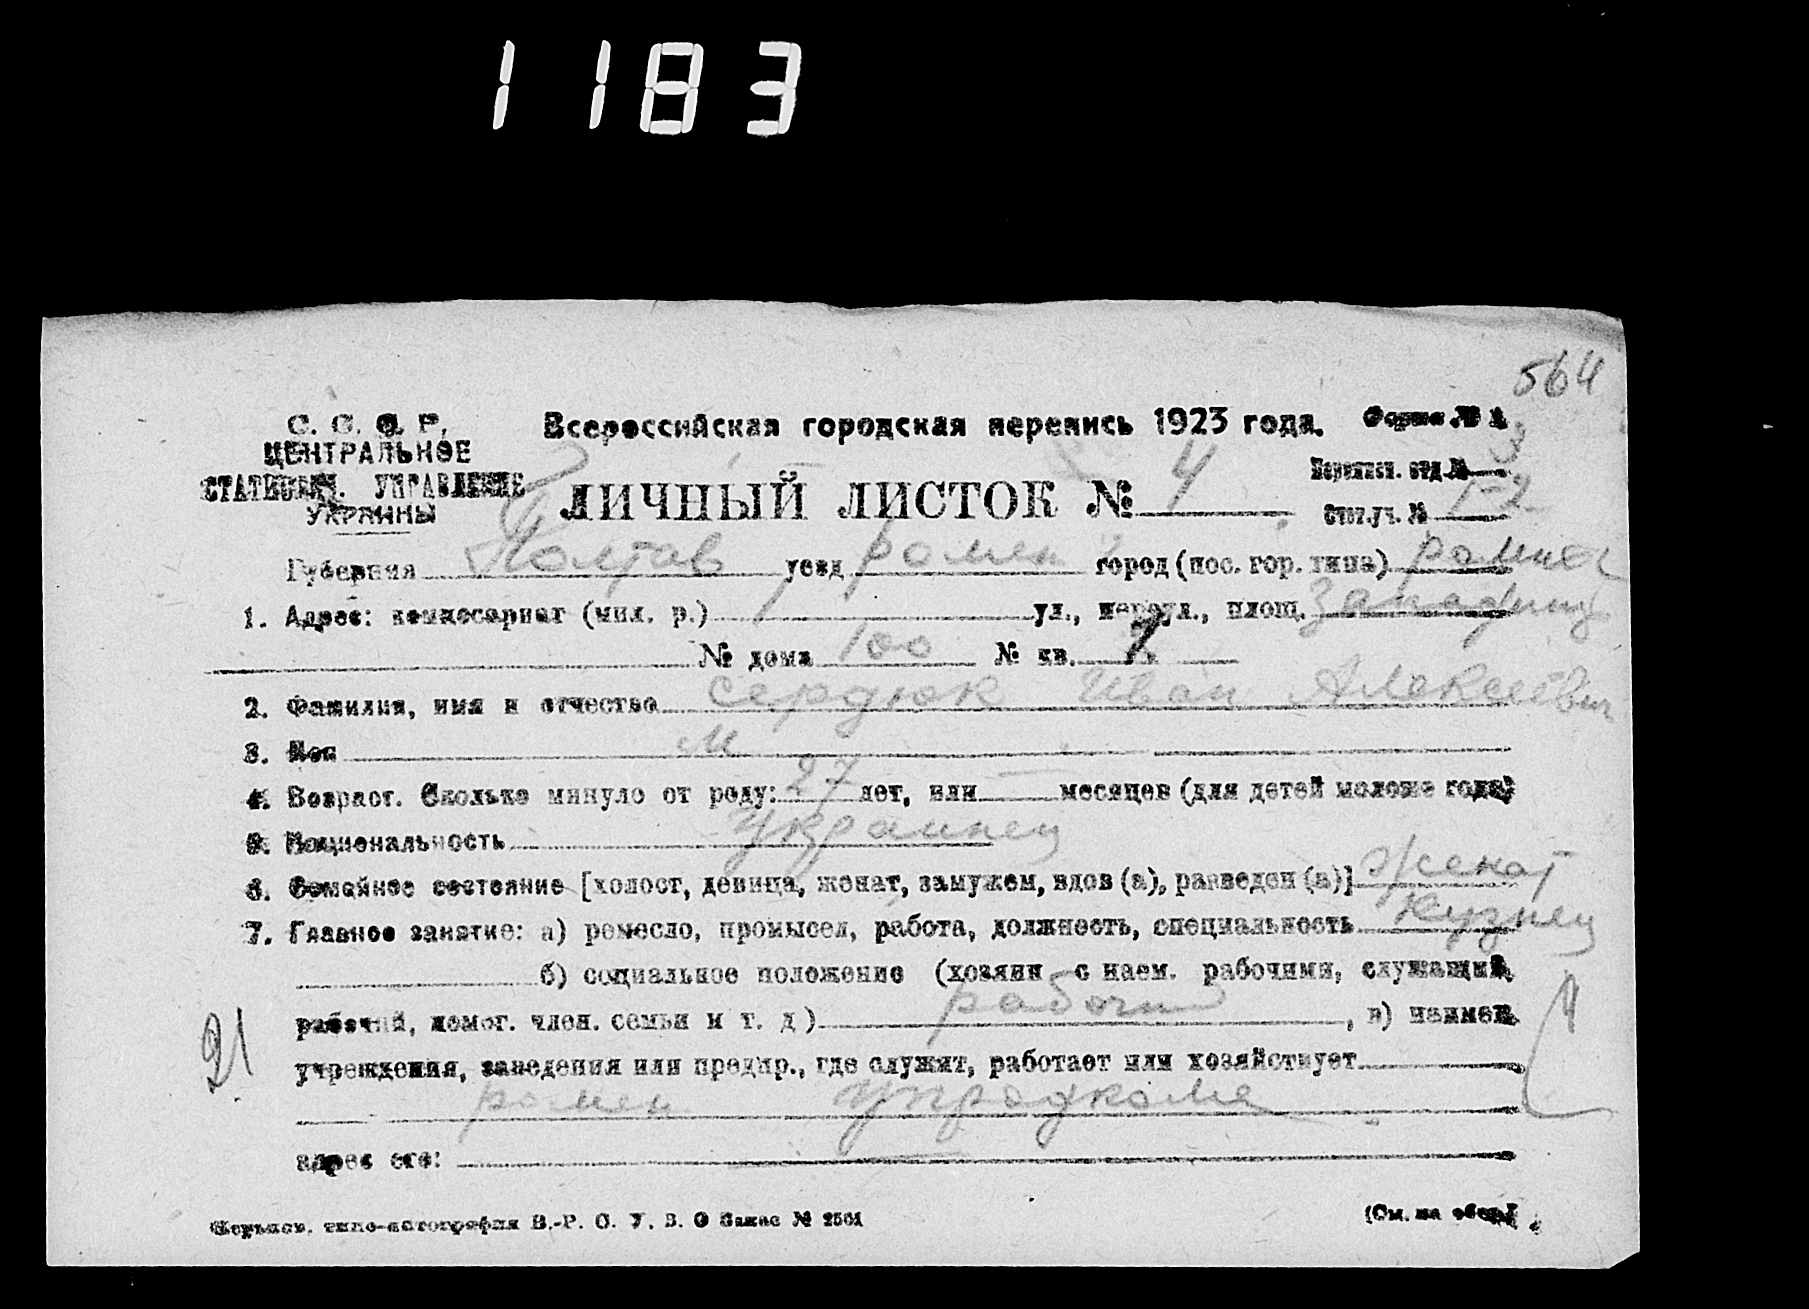 1183
564
С. С. С. Р.
ЦЕНТРАЛЬНОЕ
СТАТИСТИЧ. УПРАВЛЕНИЕ
УКРАИНЫ
Всероссийская городская перепись 1923 года.
Форма № 1
ЛИЧНЫЙ ЛИСТОК № 4
Переписн. отд. № 3
Стат.уч. № 1-2
Губерния Полтав уезд ромен город (пос. гор. типа)
1. Адрес: комиссариат (мил. р.) 1 ул., переул., площ.
№ дома 100 № кв.
2. Фамилия, имя и отчество Сердюк Иван Алексеевич
3. Пол М
4. Возраст. Сколько минуло от роду: 27 лет, или — месяцев (для детей моложе года)
5. Национальность Украинец
6. Семейное состояние [холост, девица, женат, замужем, вдов (а), разведен (а)] Женат
7. Главное занятие: а) ремесло, промысел, работа, должность, специальность Кузнец
б) социальное положение (хозяин с наем. рабочими, служащий,
рабочий, помог. член. семьи и т. д) рабочий, в) наимен.
21
учреждения, заведения или предпр., где служит, работает или хозяйствует
ромен упродкоме
адрес его:
Харьков. типо-литография В.-Р. С. У. В. О Заказ № 2561
(См. на обор.)